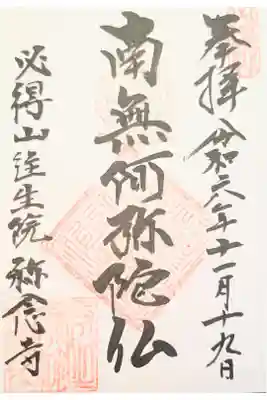 奉拝 令和六年十一月十九日
南無阿弥陀仏
必得山往生院 称念寺